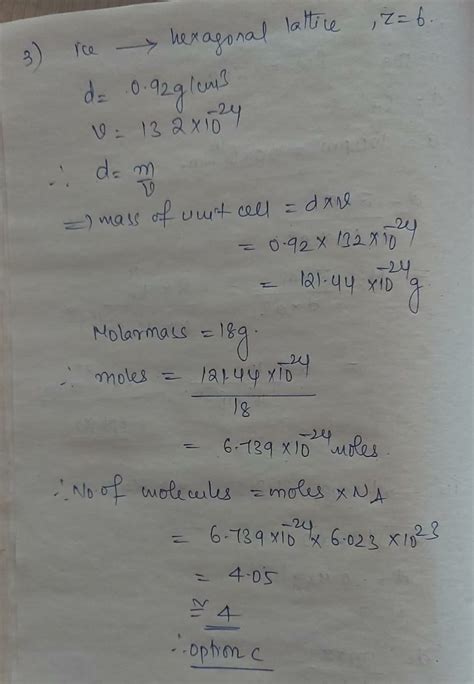 3) Ice → hexagonal lattice, z=6.
d= 0.92g/cm3
V= 132×10^-24
∴ d= m/V
⇒ mass of unit cell = d×v
= 0.92 × 132×10^-24
= 121.44 ×10^-24 g
Molarmass = 18g.
∴ moles = 121.44×10^-24
18
= 6.739 ×10^-24 moles.
∴ No of molecules = moles × NA
= 6.739×10^-24 × 6.023 ×10^23
= 4.05
≅ 4
∴ option c